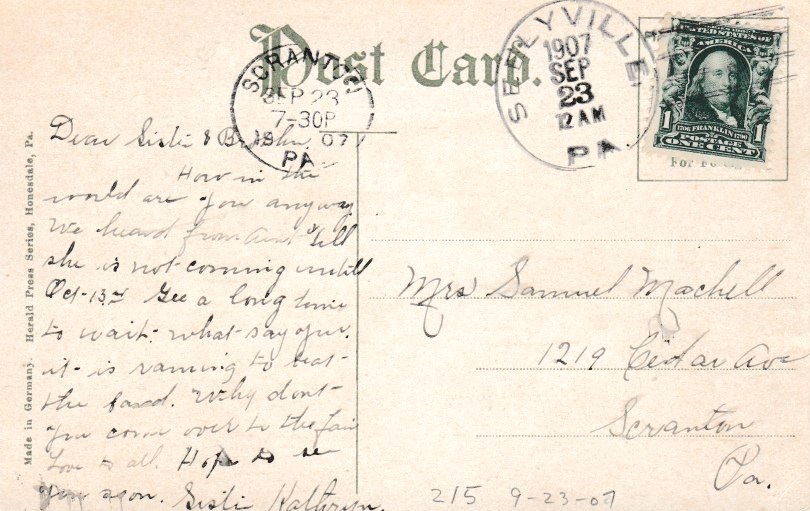 Post Card.
SCRANTON
SEP 23
7-30P
19 07
PA
SEELYVILLE
1907
SEP
23
12 AM
PA.
UNITED STATES OF
AMERICA
1 1706 FRANKLIN 1790 1
POSTAGE
ONE CENT
For
Made in Germany. Herald Press Series, Honesdale, Pa.
Dear Sister & B. John,
How in the
world are you anyway
We heard from Aunt Till
she is not coming untill
Oct-13th Gee a long time
to wait. what say you.
it is raining to beat
the band. Why dont
you come over to the fair
Love to all. Hope to see
you soon. Sister Kathryn.
Mrs Samuel Machell
1219 Cedar Ave
Scranton
Pa.
215 9-23-07